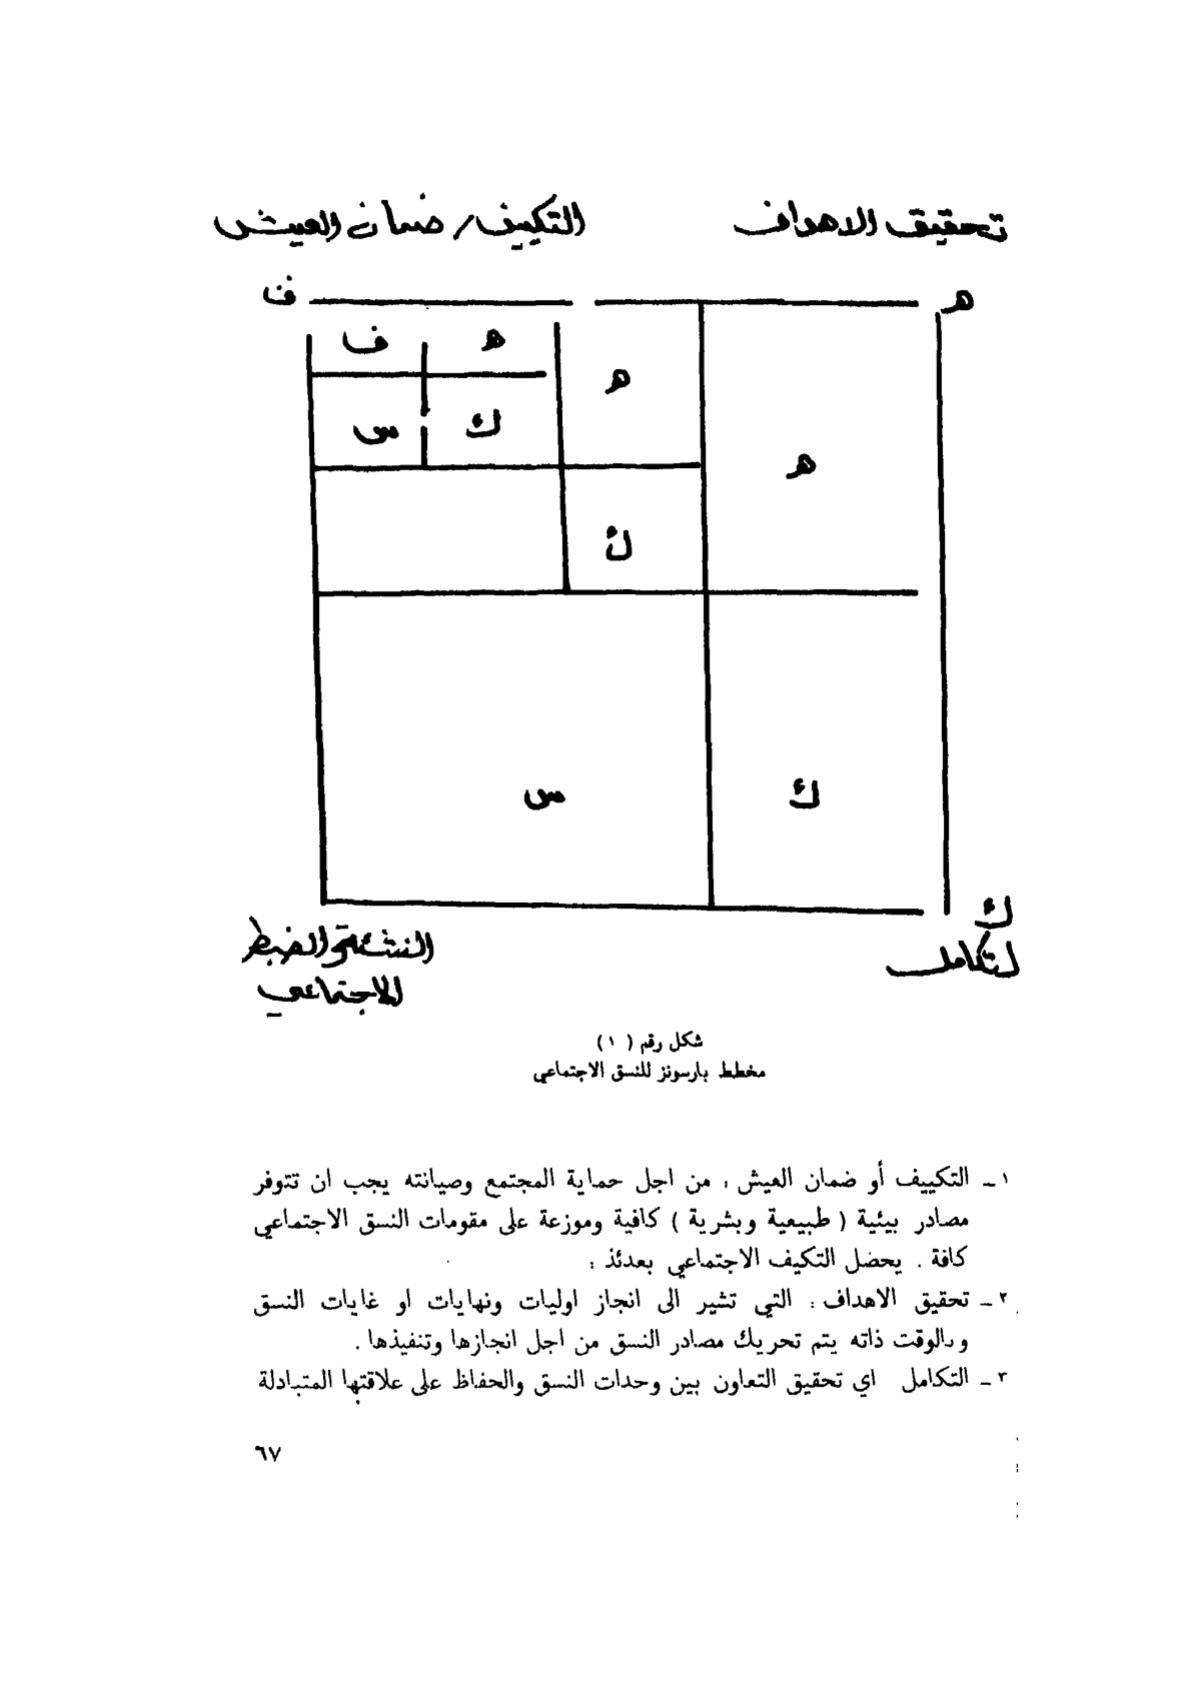 تحقيق الاهداف
التكييف / ضمان العيش
هـ
ف
هـ
ف
هـ
ك
س
هـ
ك
هـ
ك
س
ك
لتكامل
التنشئة والضبط
الاجتماعي
شكل رقم ( ١ )
مخطط بارسونز للنسق الاجتماعي
١ ـ التكييف أو ضمان العيش ، من اجل حماية المجتمع وصيانته يجب ان تتوفر
مصادر بيئية ( طبيعية وبشرية ) كافية وموزعة على مقومات النسق الاجتماعي
كافة . يحضل التكيف الاجتماعي بعدئذ :
٢ ـ تحقيق الاهداف : التي تشير الى انجاز اوليات ونهايات او غايات النسق
وبالوقت ذاته يتم تحريك مصادر النسق من اجل انجازها وتنفيذها .
٣ ـ التكامل اي تحقيق التعاون بين وحدات النسق والحفاظ على علاقتها المتبادلة
٦٧